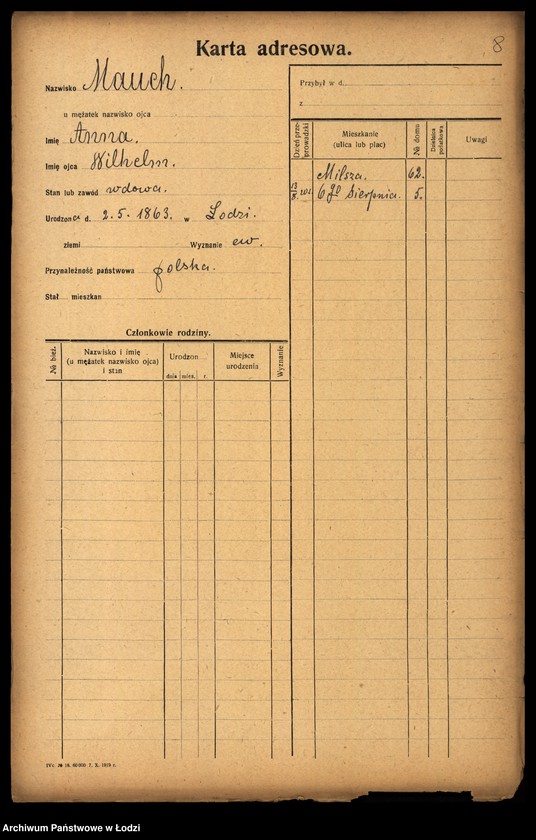 8
Karta adresowa.
Nazwisko Mauch.
u mężatek nazwisko ojca
Imię Anna.
Imię ojca Wilhelm.
Stan lub zawód wdowa.
Urodzona d. 2. 5. 1863. w Łodzi.
ziemi Wyznanie ew.
Przynależność państwowa polska.
Stał mieszkan
Członkowie rodziny.
№ bież.
Nazwisko i imię
(u mężatek nazwisko ojca)
i stan
Urodzon
dnia mies. r.
Miejsce
urodzenia
Wyznanie
Przybył w d.
z
Dzień prze-
prowadzki
Mieszkanie
(ulica lub plac)
№ domu
Dzielnica
podatkowa
Uwagi
Milsza. 62.
13/8. 6 Sierpnia. 5.
Archiwum Państwowe w Łodzi